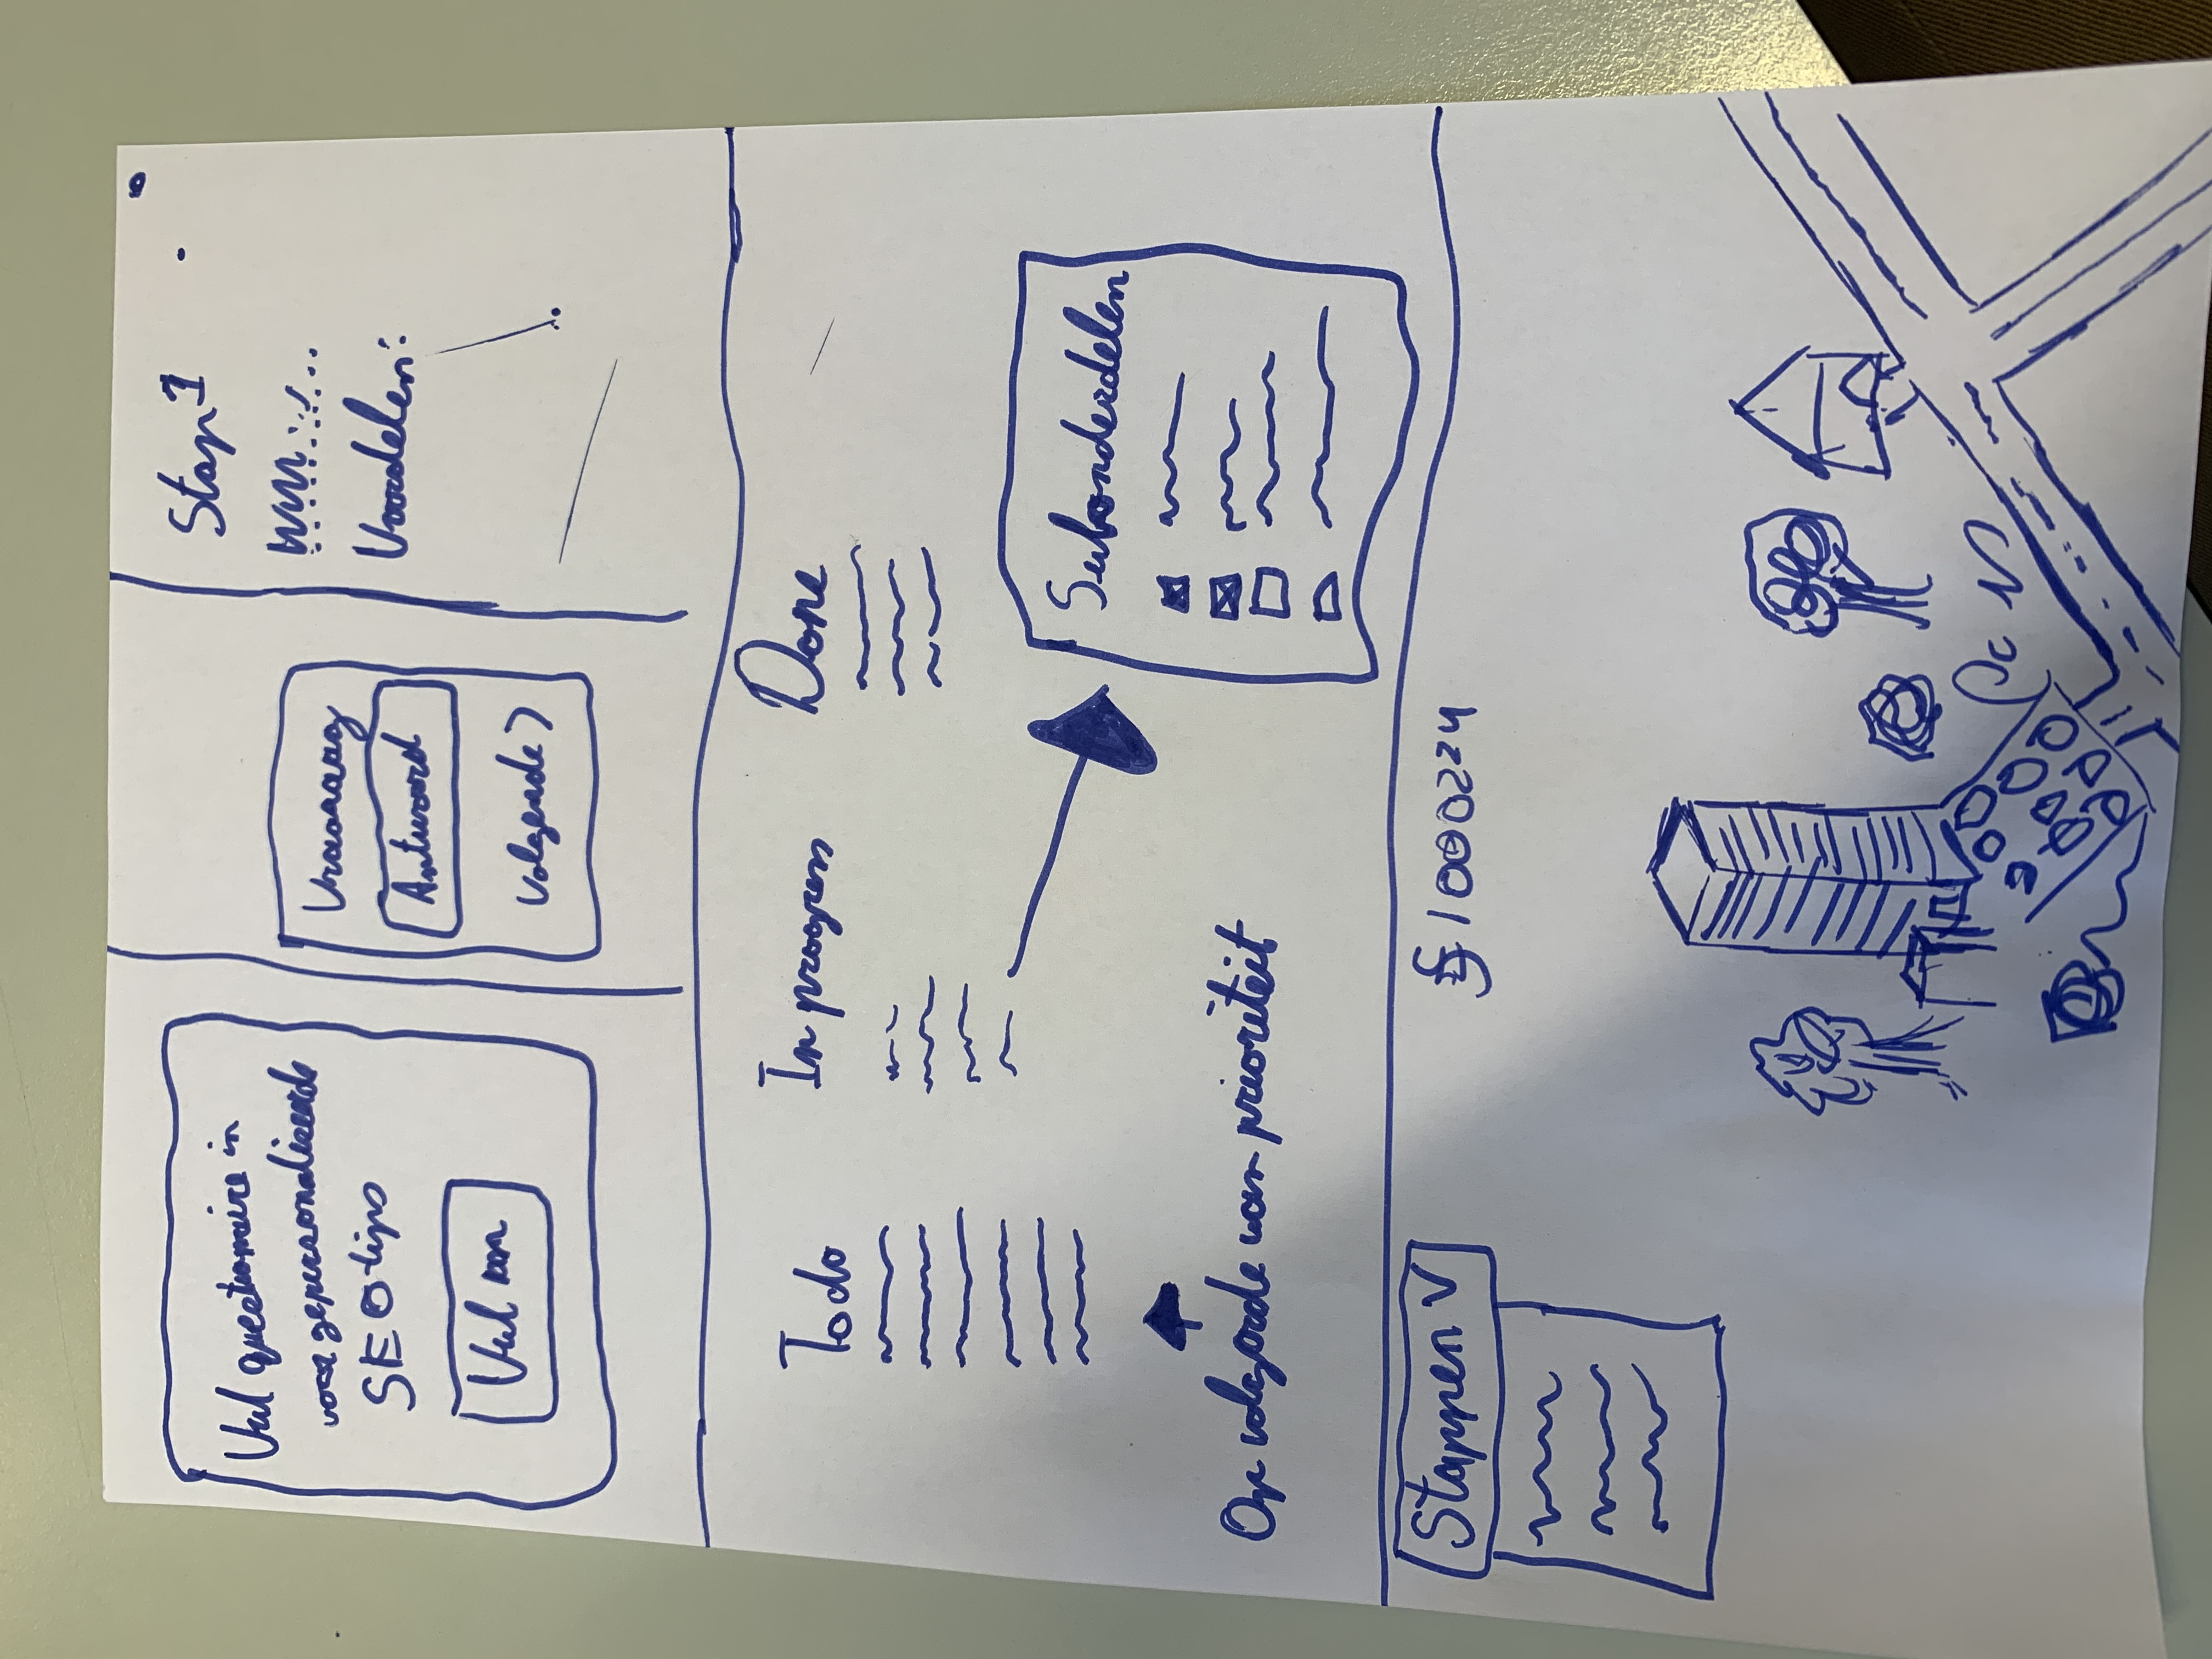 Vul questionnaire in
voor gepersonaliseerde
SEO tips
Vul aan
Vraaaaag
Antwoord
Volgende >
Stap 1
Voordelen:
Todo
In progress
Done
Op volgorde van prioriteit
Subonderdelen
Stappen V
1000224